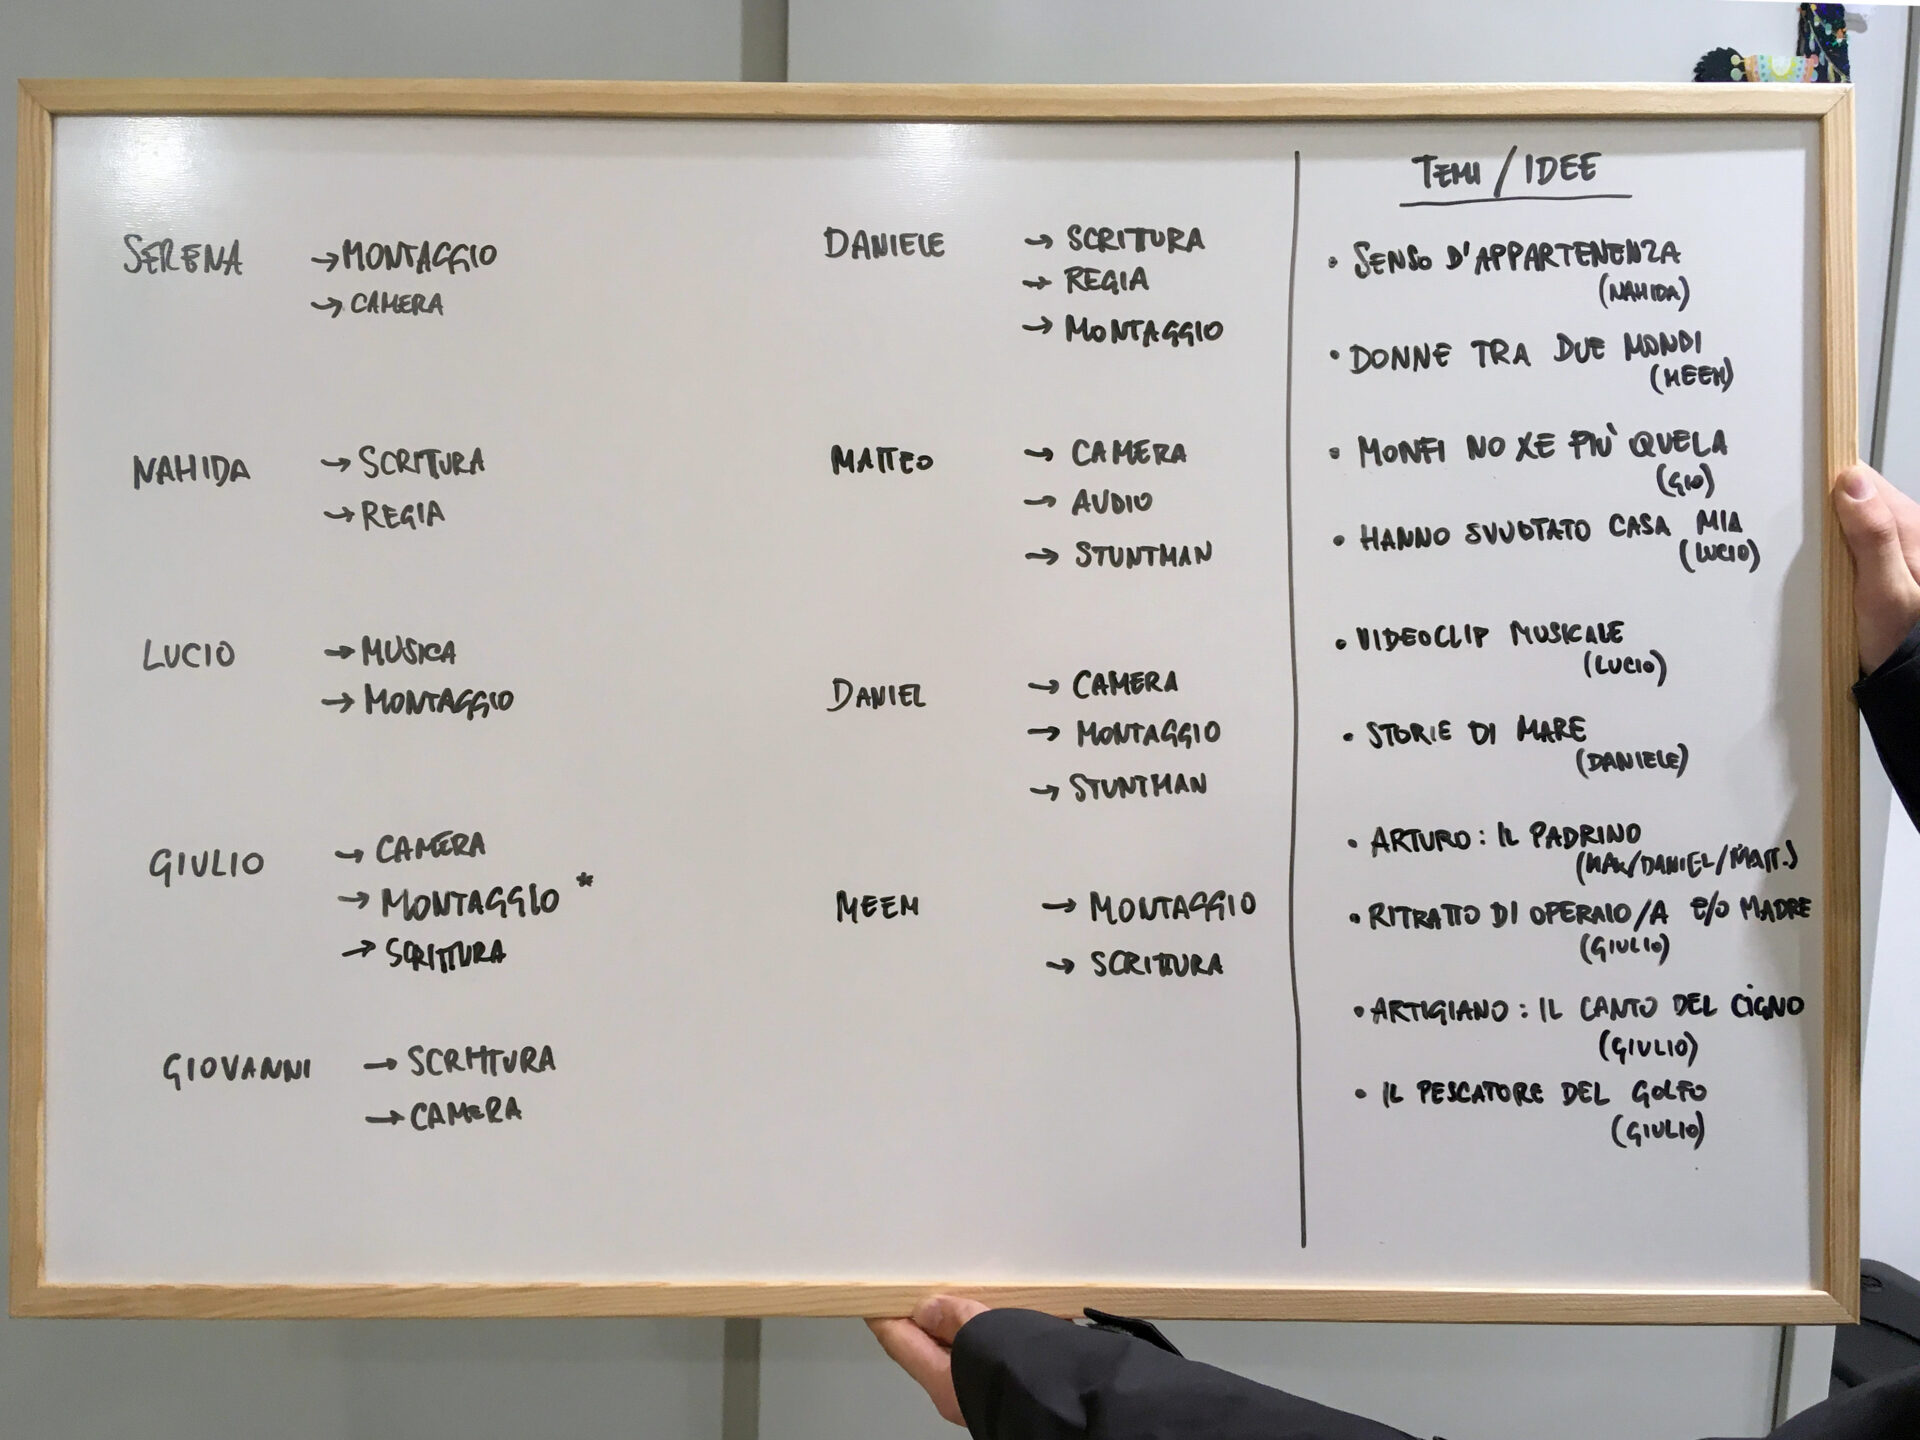 SERENA → MONTAGGIO
→ CAMERA
NAHIDA → SCRITTURA
→ REGIA
LUCIO → MUSICA
→ MONTAGGIO
GIULIO → CAMERA
→ MONTAGGIO *
→ SCRITTURA
GIOVANNI → SCRITTURA
→ CAMERA
DANIELE → SCRITTURA
→ REGIA
→ MONTAGGIO
MATTEO → CAMERA
→ AUDIO
→ STUNTMAN
DANIEL → CAMERA
→ MONTAGGIO
→ STUNTMAN
MEEM → MONTAGGIO
→ SCRITTURA
TEMI / IDEE
• SENSO D'APPARTENENZA
(NAHIDA)
• DONNE TRA DUE MONDI
(MEEM)
• MONFI NO XE PIÙ QUELA
(GIO)
• HANNO SVUOTATO CASA MIA
(LUCIO)
• VIDEOCLIP MUSICALE
(LUCIO)
• STORIE DI MARE
(DANIELE)
• ARTURO: IL PADRINO
(/DANIEL/MATT.)
• RITRATTO DI OPERAIO/A E/O MADRE
(GIULIO)
• ARTIGIANO: IL CANTO DEL CIGNO
(GIULIO)
• IL PESCATORE DEL GOLFO
(GIULIO)